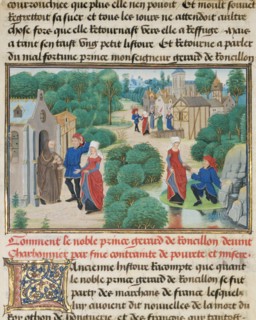 courouchee que plus elle nen pouoit Et moult souuet
Regrettoit sa suer et tous les iours ne attendoit aultre
chose fors que elle retournast vers elle a reffuge Mais
a tant sen taist vng petit listoire Et retourne a parler
du mal fortune prince monseigneur gerard de Roncillon
Comment le noble prince gerard de Roncillon deuint
Charbonnier par fine contrainte de pourete et misere
Lancienne histoire Racompte que quant
le noble prince gerard de Roncillon se fut
party des marchans de france lesquelz
luy auoient dit nouuelles de la mort du
Roy othon de honguerie et des francois